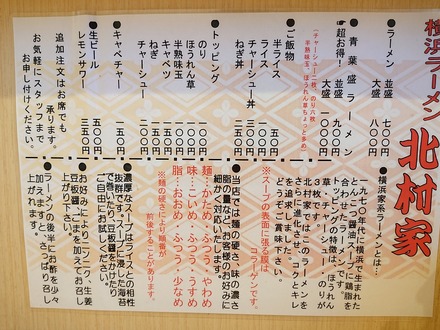 横浜ラーメン
北村家
●ラーメン 並盛 七〇〇円
大盛 八〇〇円
●青葉盛ラーメン
超お得！ 並盛 九〇〇円
大盛
(チャーシュー二枚、のり六枚
半熟味玉、ほうれん草ちょっと多め)
●ご飯物
半ライス
ライス
チャーシュー丼
ねぎ丼
●トッピング
のり 一〇〇円
ほうれん草 一〇〇円
半熟味玉 一〇〇円
キャベツ
ねぎ
チャーシュー
●キャベチャー 一五〇円
●生ビール 五〇〇円
レモンサワー 三五〇円
追加注文はお席でも
承ります。
お気軽にスタッフまで
お申し付けください。
●横浜家系ラーメンとは…
一九七〇年代に横浜で生まれた
とんこつ醤油ベースに鶏脂を
合わせたラーメンです。
トッピングの特徴は、ほうれん
草、チャーシュー、のりが
三枚です。
北村家ではこのラーメンを
さらに進化させ、コクとキレ
を追求しました。
どうぞご賞味下さい。
※スープの表面に張る膜は
ラーメンです。
●当店では麺の硬さ、味の濃さ
脂の量などお客様のお好みに
細かく対応いたします。
麺…かため ふつう やわめ
味…こいめ ふつう うすめ
脂…おおめ ふつう 少なめ
※麺の硬さにより順番が
前後することがあります。
●濃厚なスープはライスとの相性
抜群です。スープに浸した海苔
で巻いたり、豆板醤をつけたり
ご自由にお試しください。
●お好みによりニンニク、生姜
豆板醤、ごまを加えてお召し
上がり下さい。
●ラーメンの後半にお酢を少々
加えますと、さっぱり召し
上がれます。